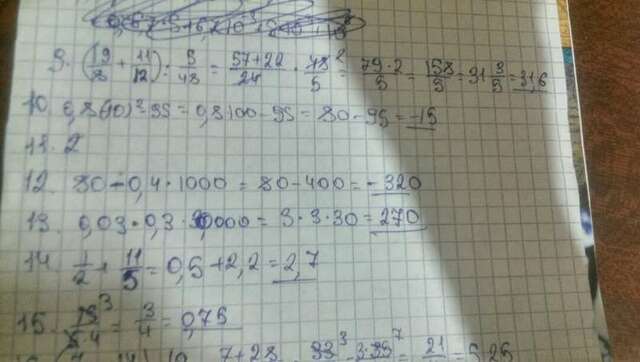 9. (19/8 + 11/12) : 5/48 = 57+22/24 · 48²/5 = 79·2/5 = 158/5 = 31 3/5 = 31,6
10. 0,8(-10)²-95 = 0,8·100-95 = 80-95 = -15
11. 2
12. 80-0,4·1000 = 80-400 = -320
13. 0,03·0,3·30000 = 3·3·30 = 270
14. 1/2 + 11/5 = 0,5+2,2 = 2,7
= 3/4 = 0,75
7+28